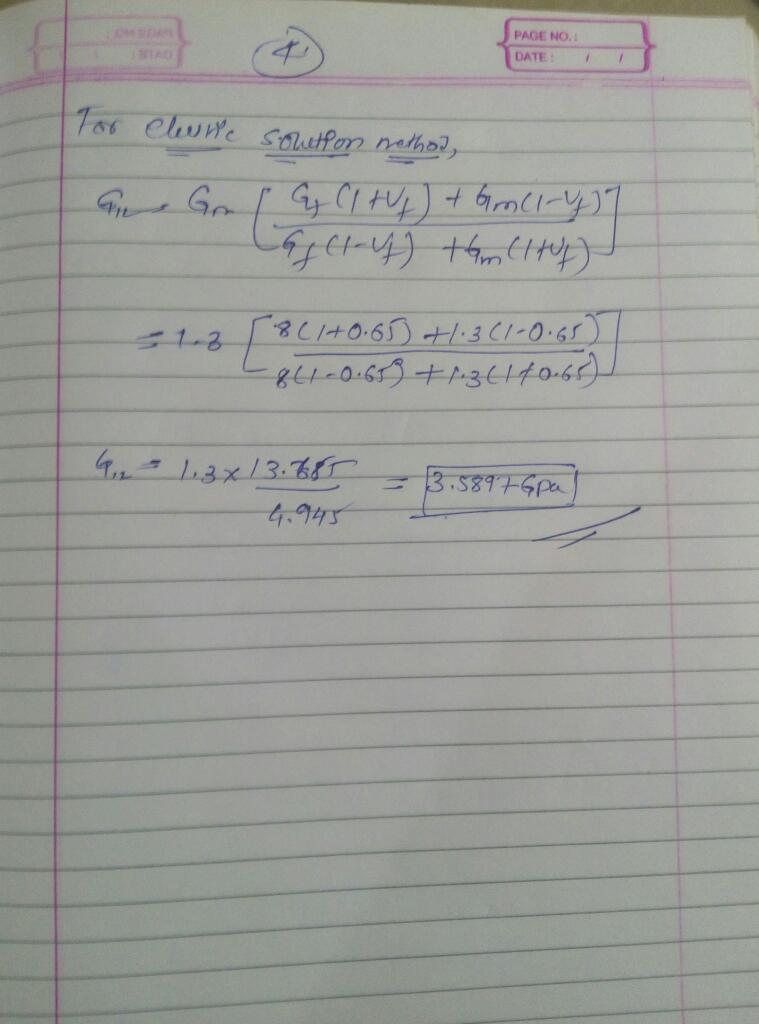 4
PAGE NO.:
DATE: / /
For elastic solution method,
G₁₂ = Gm [ Gf (1+Vf) + Gm(1-Vf) / Gf (1-Vf) + Gm (1+Vf) ]
= 1.3 [ 8(1+0.65) + 1.3(1-0.65) / 8(1-0.65) + 1.3(1+0.65) ]
G₁₂ = 1.3 × 13.655 / 4.945 = 3.5897 Gpa